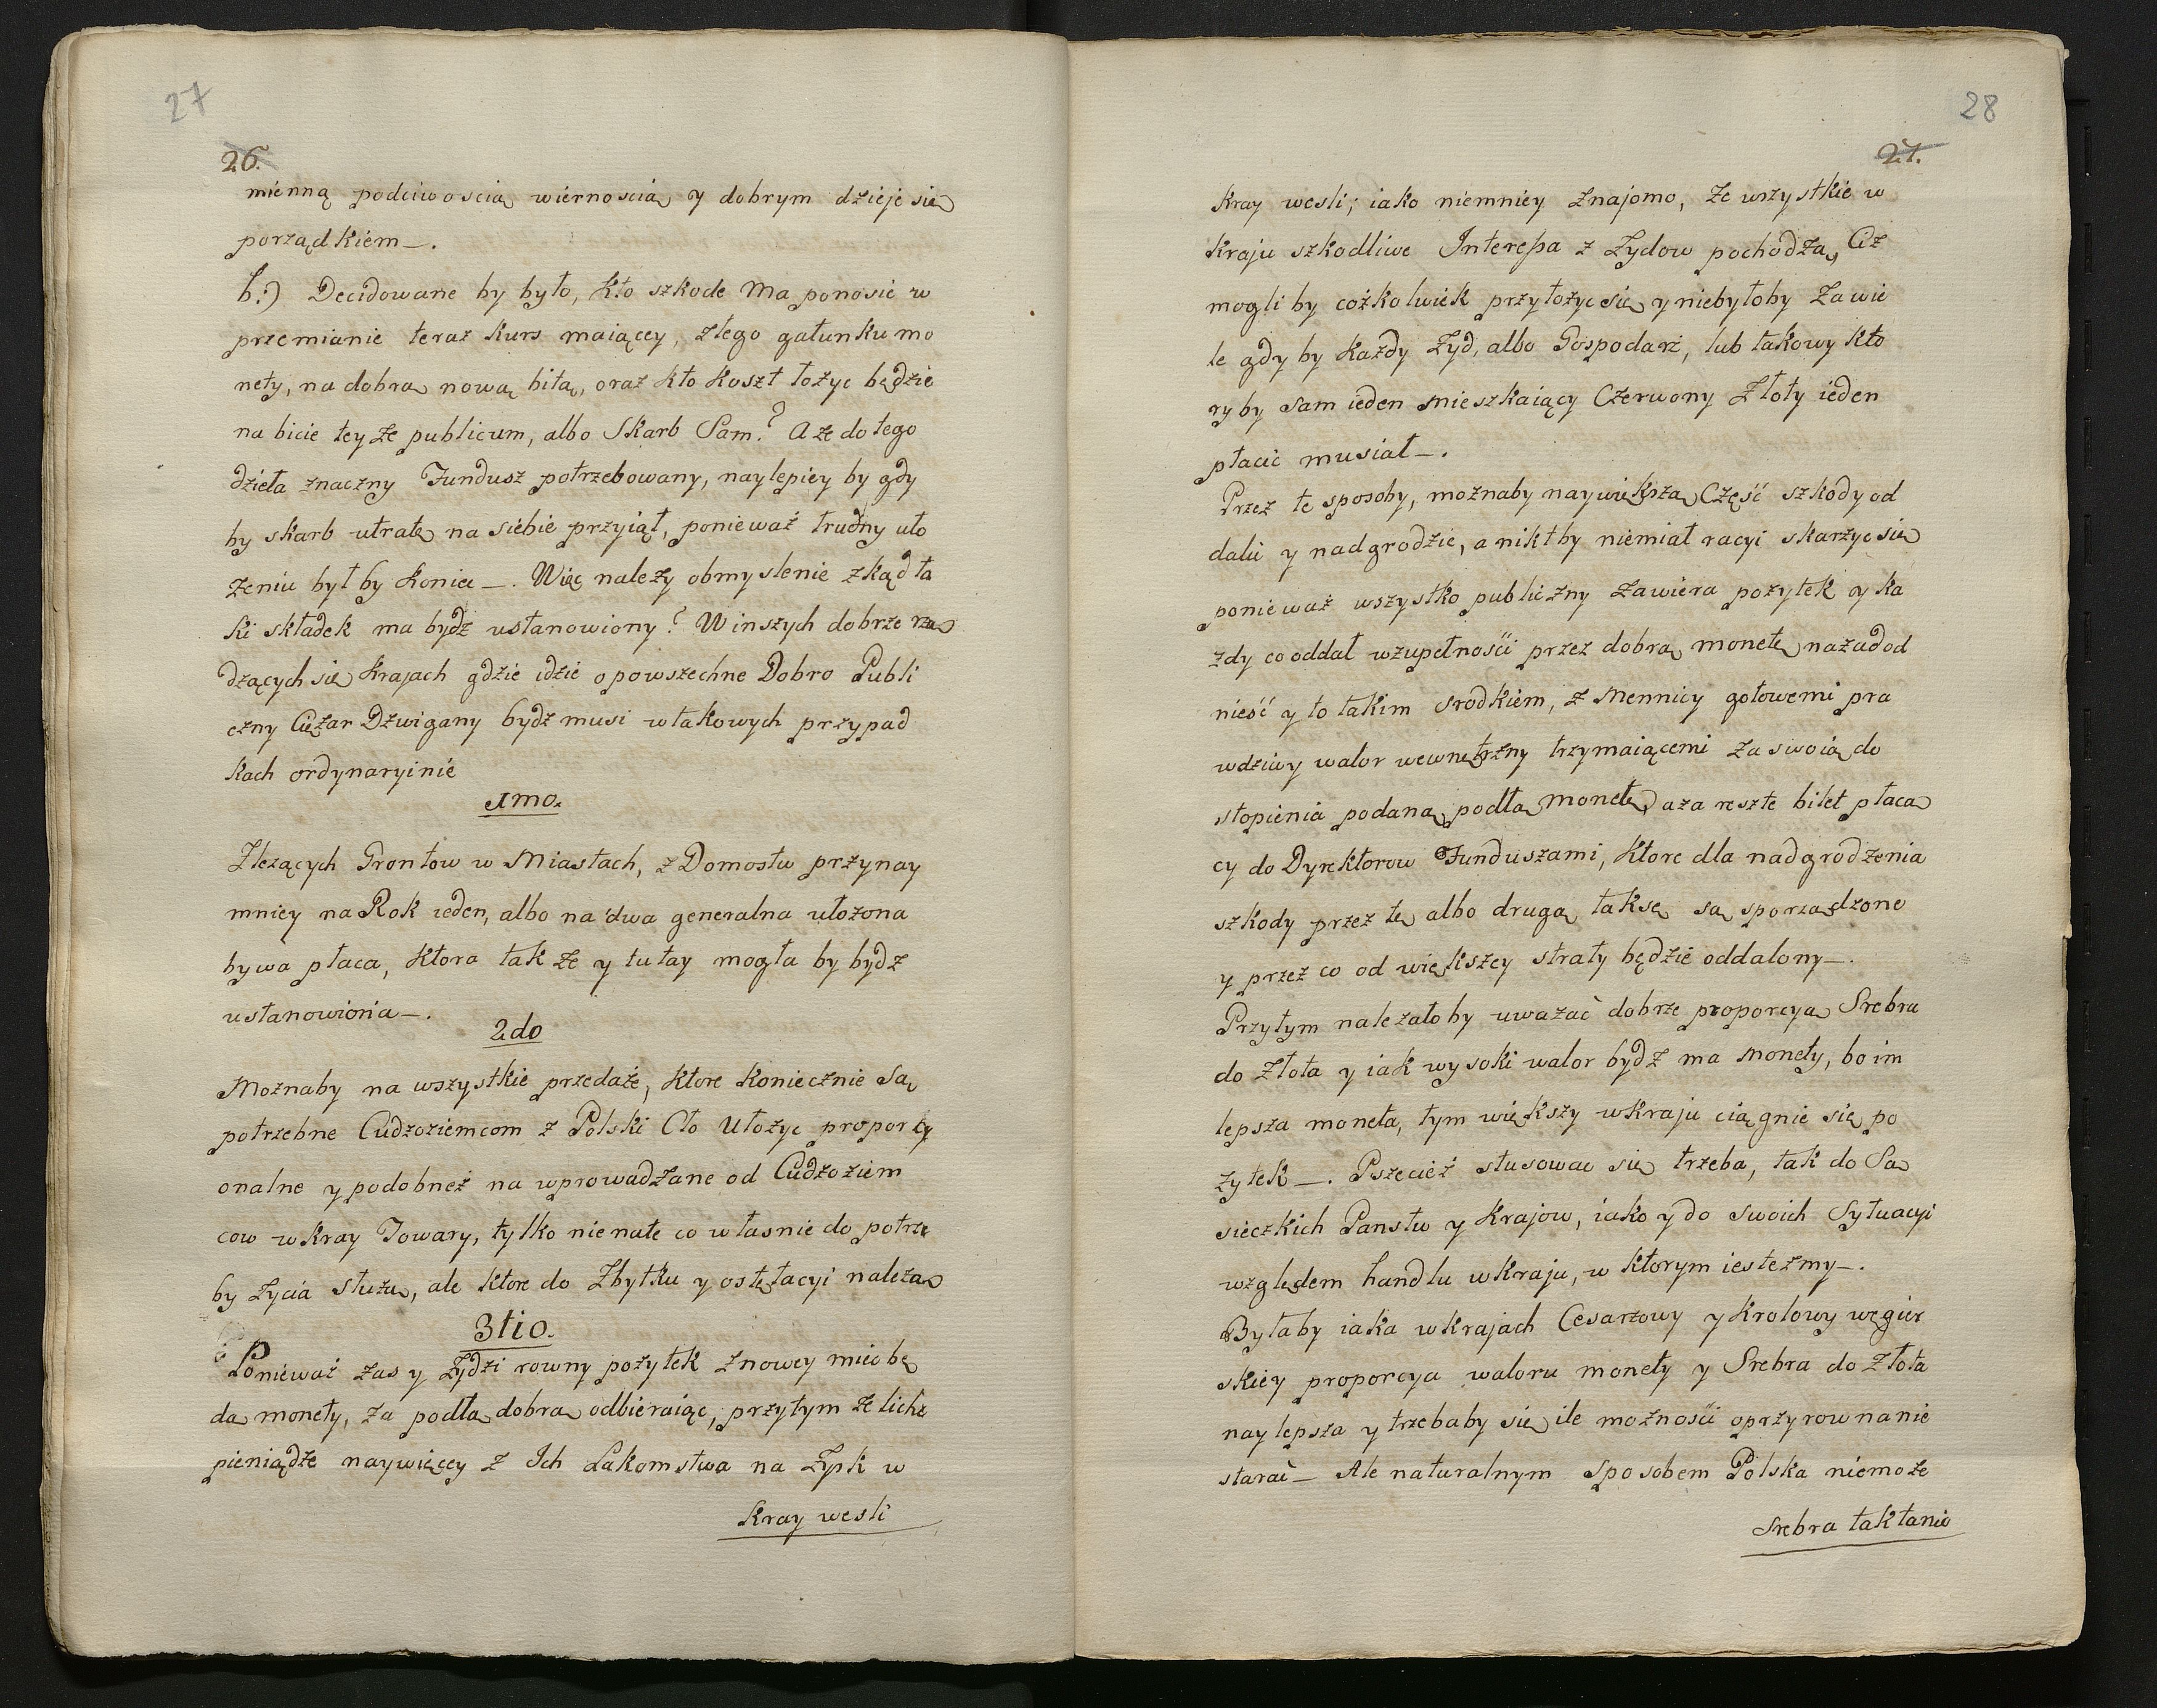 27
26.
mienną podciwoscią wiernoscią y dobrym dzieje się
porządkiem_.
b.) Decidowane by było, kto szkode ma ponosic w
przemianie teraz kurs maiącey, złego gatunku mo
nety, na dobrą nową bitą, oraz kto koszt łożyc będzie
na bicie teyże publicum, albo Skarb Sam? A że do tego
dzieła znaczny Fundusz potrzebowany, naylepiey by gdy
by skarb utratę na siebie przyiął, ponieważ trudny uło
żeniu był by koniec_. Więc należy obmyslenie zkąd ta
ki składek ma bydz ustanowiony? W inszych dobrze rzą
dzących się krajach gdzie idzie o powszechne Dobro Publi
czny Ciężar Dzwigany bydz musi w takowych przypad
kach ordynaryinie
1mo.
Zlezących Grontow w Miastach, z Domostw przynay
mniey na Rok ieden, albo na dwa generalna ułożona
bywa płaca, ktora tak że y tutay mogła by bydz
ustanowiona_.
2do
Moznaby na wszystkie przedaże, ktore koniecznie są
potrzebne Cudzoziemcom z Polski Cło ułożyc proporcy
onalne y podobnez na wprowadzane od Cudzoziem
cow w kray Towary, tylko nie na te co własnie do potrze
by życia służą, ale ktore do Zbytku y ostętacyi należą
3tio.
Ponieważ zas y Zydzi rowny pożytek z nowey miec bę
dą monety, za podłą dobrą odbieraiąc, przytym że liche
pieniądze naywięcey z Ich Łakomstwa na Zysk w
kray wesli
28
27.
kray wesli; iako niemniey znajomo, że wszystkie w
kraju szkodliwe Interessa z Zydow pochodzą, Ciż
mogli by cożkolwiek przyłożyc się y niebyłoby zawie
le gdy by każdy Zyd, albo Gospodarz, lub takowy kto
ry by sam ieden mieszkaiący Czerwony Złoty ieden
płacic musiał_.
Przez te sposoby, możnaby naywiększą Część szkody od
dalic y nadgrodzic, a nikt by niemiał racyi skarżyc się
ponieważ wszystko publiczny zawiera pożytek y ka
żdy co oddał w zupełności przez dobrą monetę nazad od
nieść y to takim srodkiem, z Mennicy gotowemi pra
wdziwy walor wewnętrzny trzymaiącemi za swoią do
stopienia podaną podłą monetę, a za reszte bilet płacą
cy do Dyrektorow Funduszami, ktore dla nadgrodzenia
szkody przez tę albo drugą taksę są sporządzone
y przez co od większey straty będzie oddalony_.
Przytym należało by uważać dobrze proporcyą Srebra
do Złota y iak wysoki walor bydz ma monety, bo im
lepsza moneta, tym większy w kraju ciągnie się po
zytek_. Pszecież stusowac się trzeba, tak do Są
sieczkich Panstw y krajow, iako y do swoich Sytuacyi
względem handlu w kraju, w ktorym iestezmy_.
Byłaby iaka w krajach Cesarzowy y Krolowy węgier
skiey proporcya waloru monety y Srebra do Złota
naylepsza y trzebaby się ile możności o przyrownanie
starać_ Ale naturalnym sposobem Polska niemoże
Srebra tak tanio